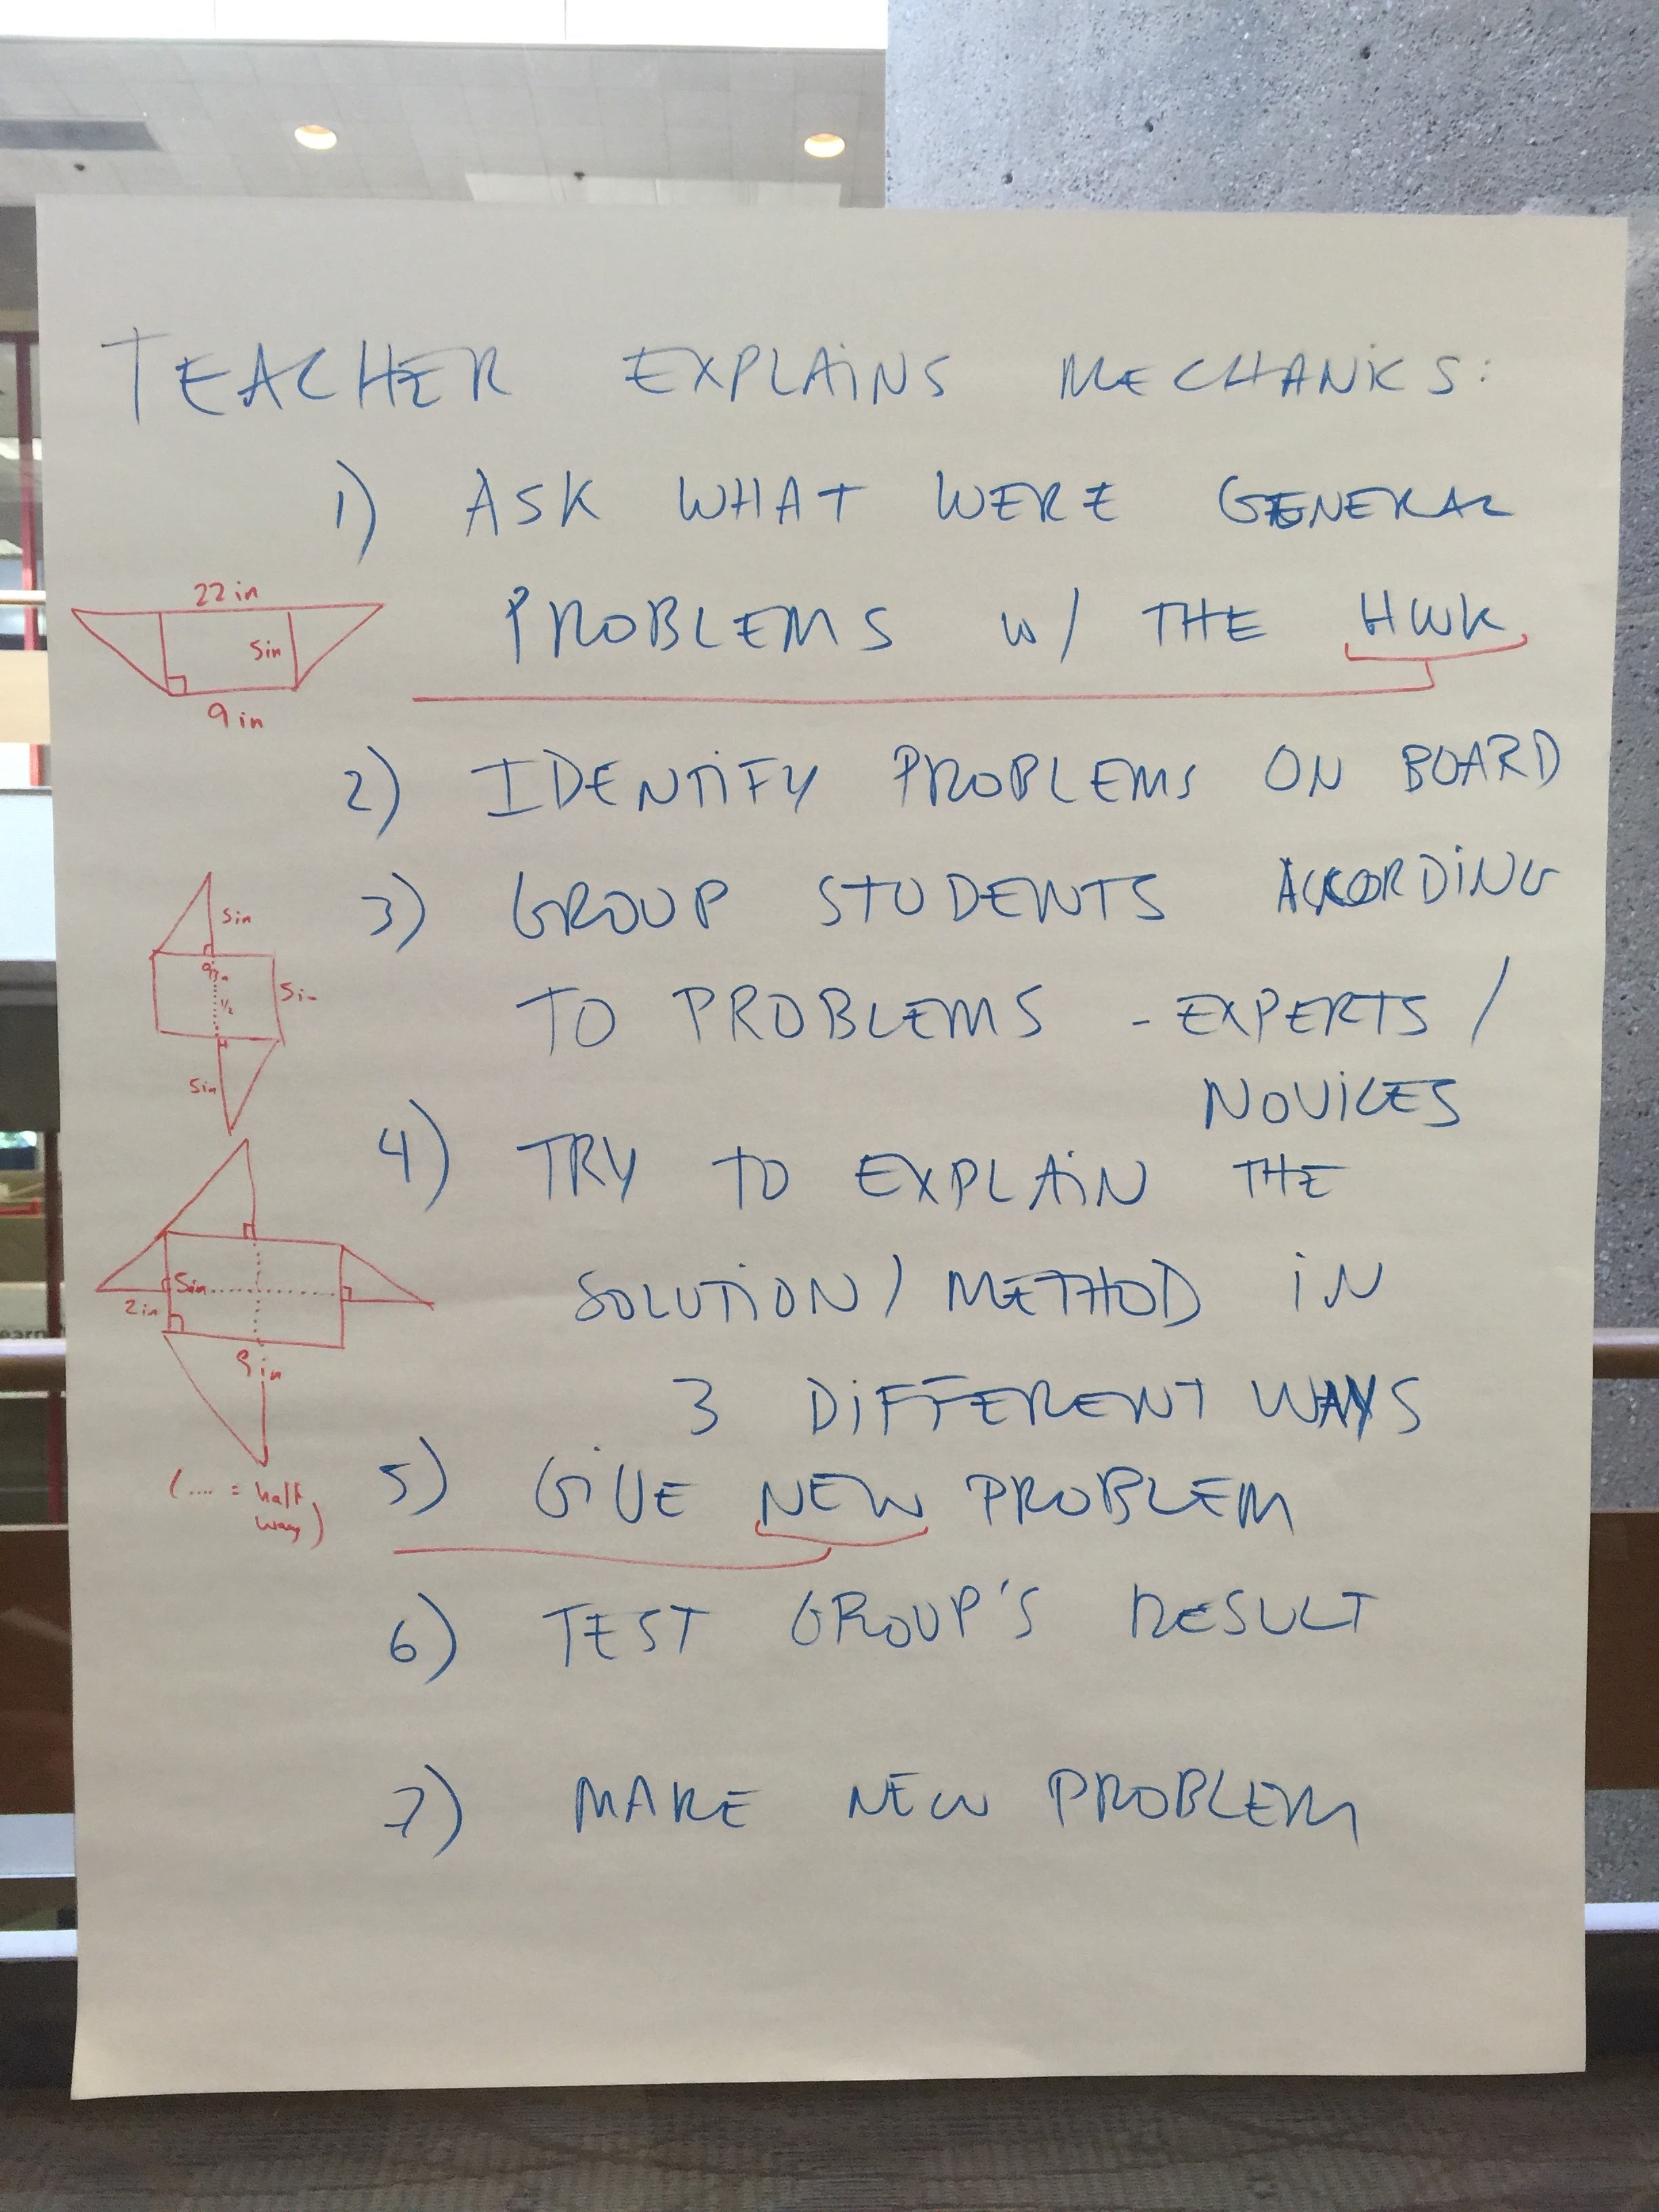 TEACHER EXPLAINS MECHANICS:
1) ASK WHAT WERE GENERAL
PROBLEMS w/ THE HWK
22 in
5in
9 in
2) IDENTIFY PROBLEMS ON BOARD
3) GROUP STUDENTS ACCORDING
TO PROBLEMS - EXPERTS /
NOVICES
5in
9in
1/2
5in
5in
4) TRY TO EXPLAIN THE
SOLUTION / METHOD IN
3 DIFFERENT WAYS
5in
2in
9in
(.... = half
way)
5) GIVE NEW PROBLEM
6) TEST GROUP'S RESULT
7) MAKE NEW PROBLEM
earn